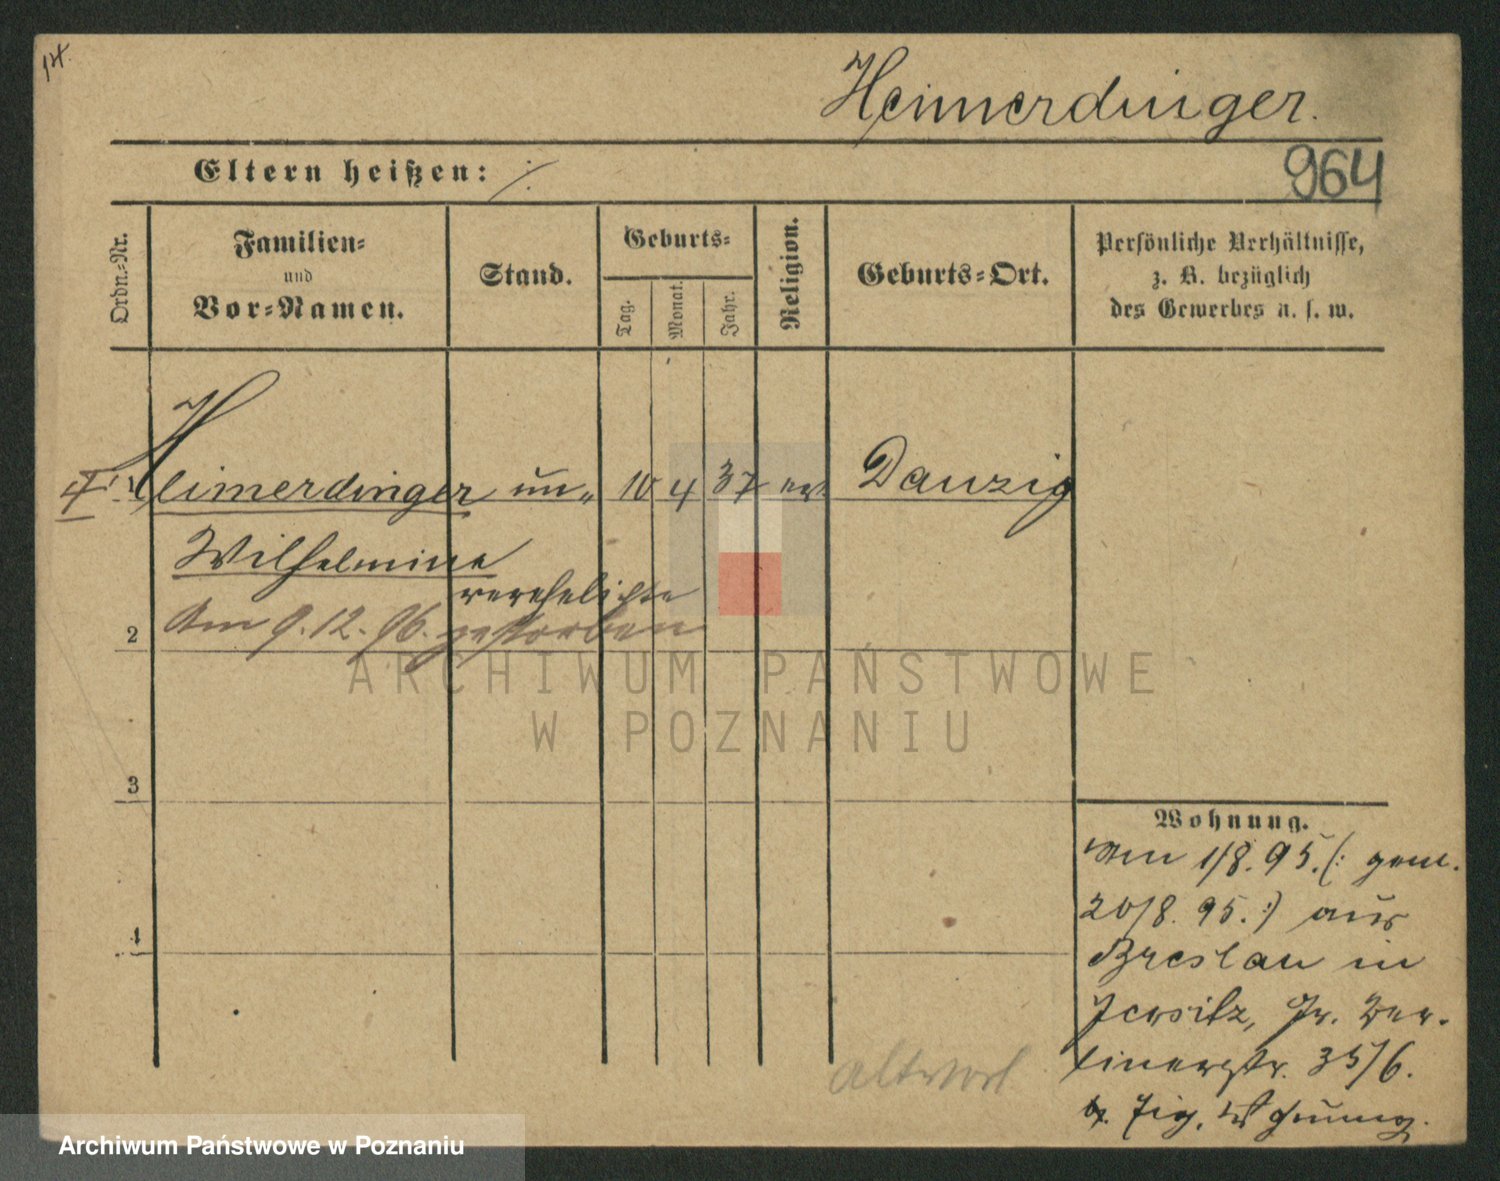 Heimerdinger.
964
Eltern heißen: ./.
Ordn.-Nr.
Familien-
und
Vor-Namen.
Stand.
Geburts-
Tag.
Monat.
Jahr.
Religion.
Geburts-Ort.
Persönliche Verhältnisse,
z. B. bezüglich
des Gewerbes u. s. w.
1 Heimerdinger un„ 10 4 37 ev. Danzig
Wilhelmine
verehelichte
2 Am 9.12.96. gestorben
3
4
Wohnung.
Am 1/8. 95. (: gem.
20/8. 95. :) aus
Breslau in
Jersitz, Gr. Ber-
linerstr. 35/6.
b. Eig. Wohnung.
altwort
ARCHIWUM PAŃSTWOWE
W POZNANIU
Archiwum Państwowe w Poznaniu